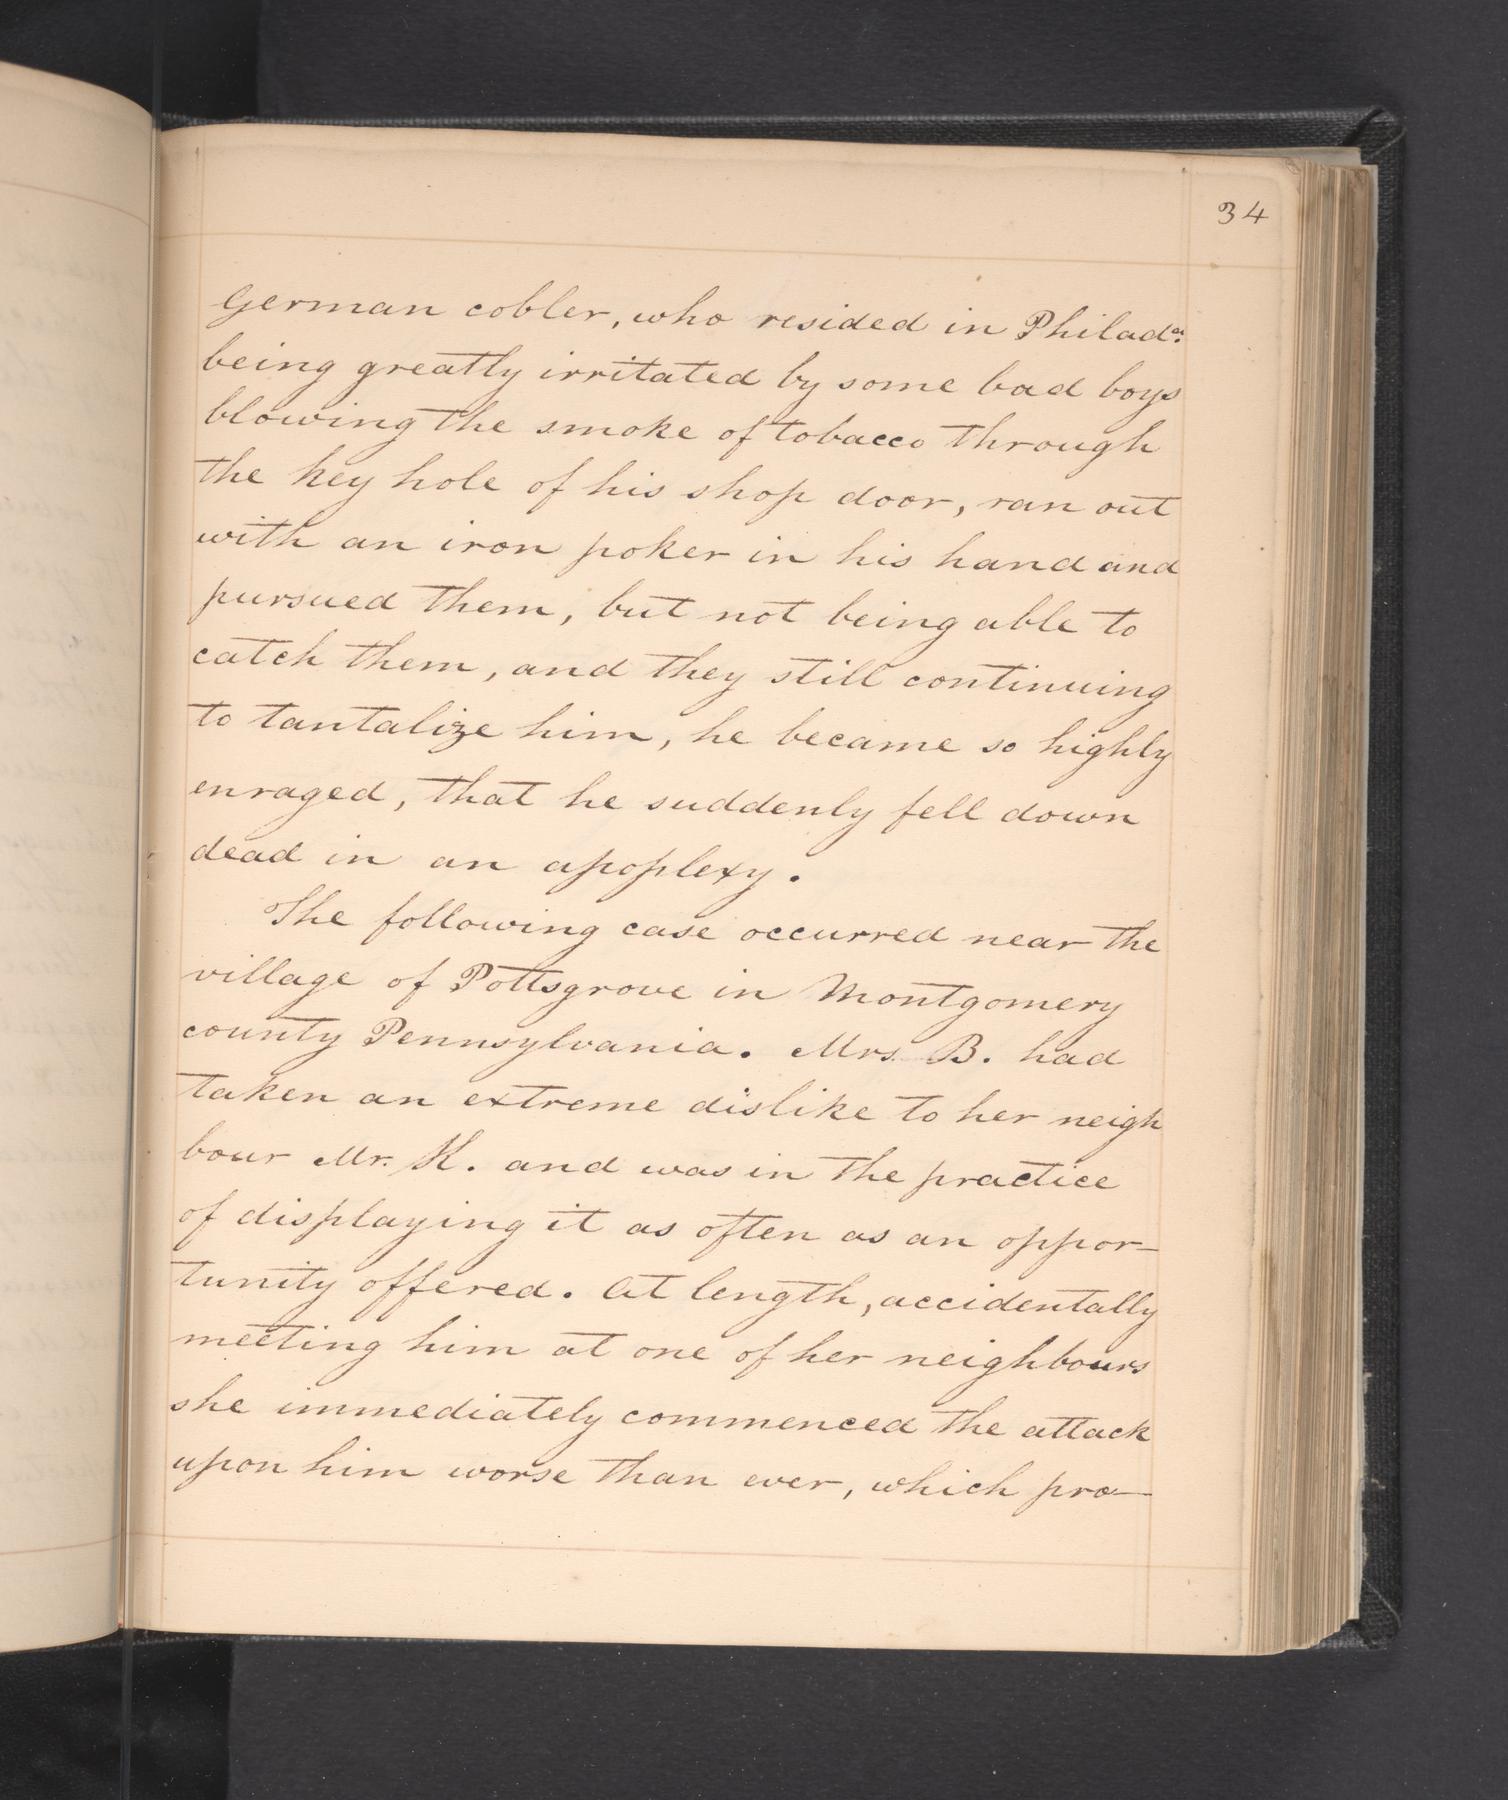 34
German cobler, who resided in Philada.
being greatly irritated by some bad boys
blowing the smoke of tobacco through
the key hole of his shop door, ran out
with an iron poker in his hand and
pursued them, but not being able to
catch them, and they still continuing
to tantalize him, he became so highly
enraged, that he suddenly fell down
dead in an apoplexy.
The following case occurred near the
village of Pottsgrove in Montgomery
county Pennsylvania. Mrs. B. had
taken an extreme dislike to her neigh
bour Mr. K. and was in the practice
of displaying it as often as an oppor-
tunity offered. At length, accidentally
meeting him at one of her neighbours
she immediately commenced the attack
upon him worse than ever, which pro-